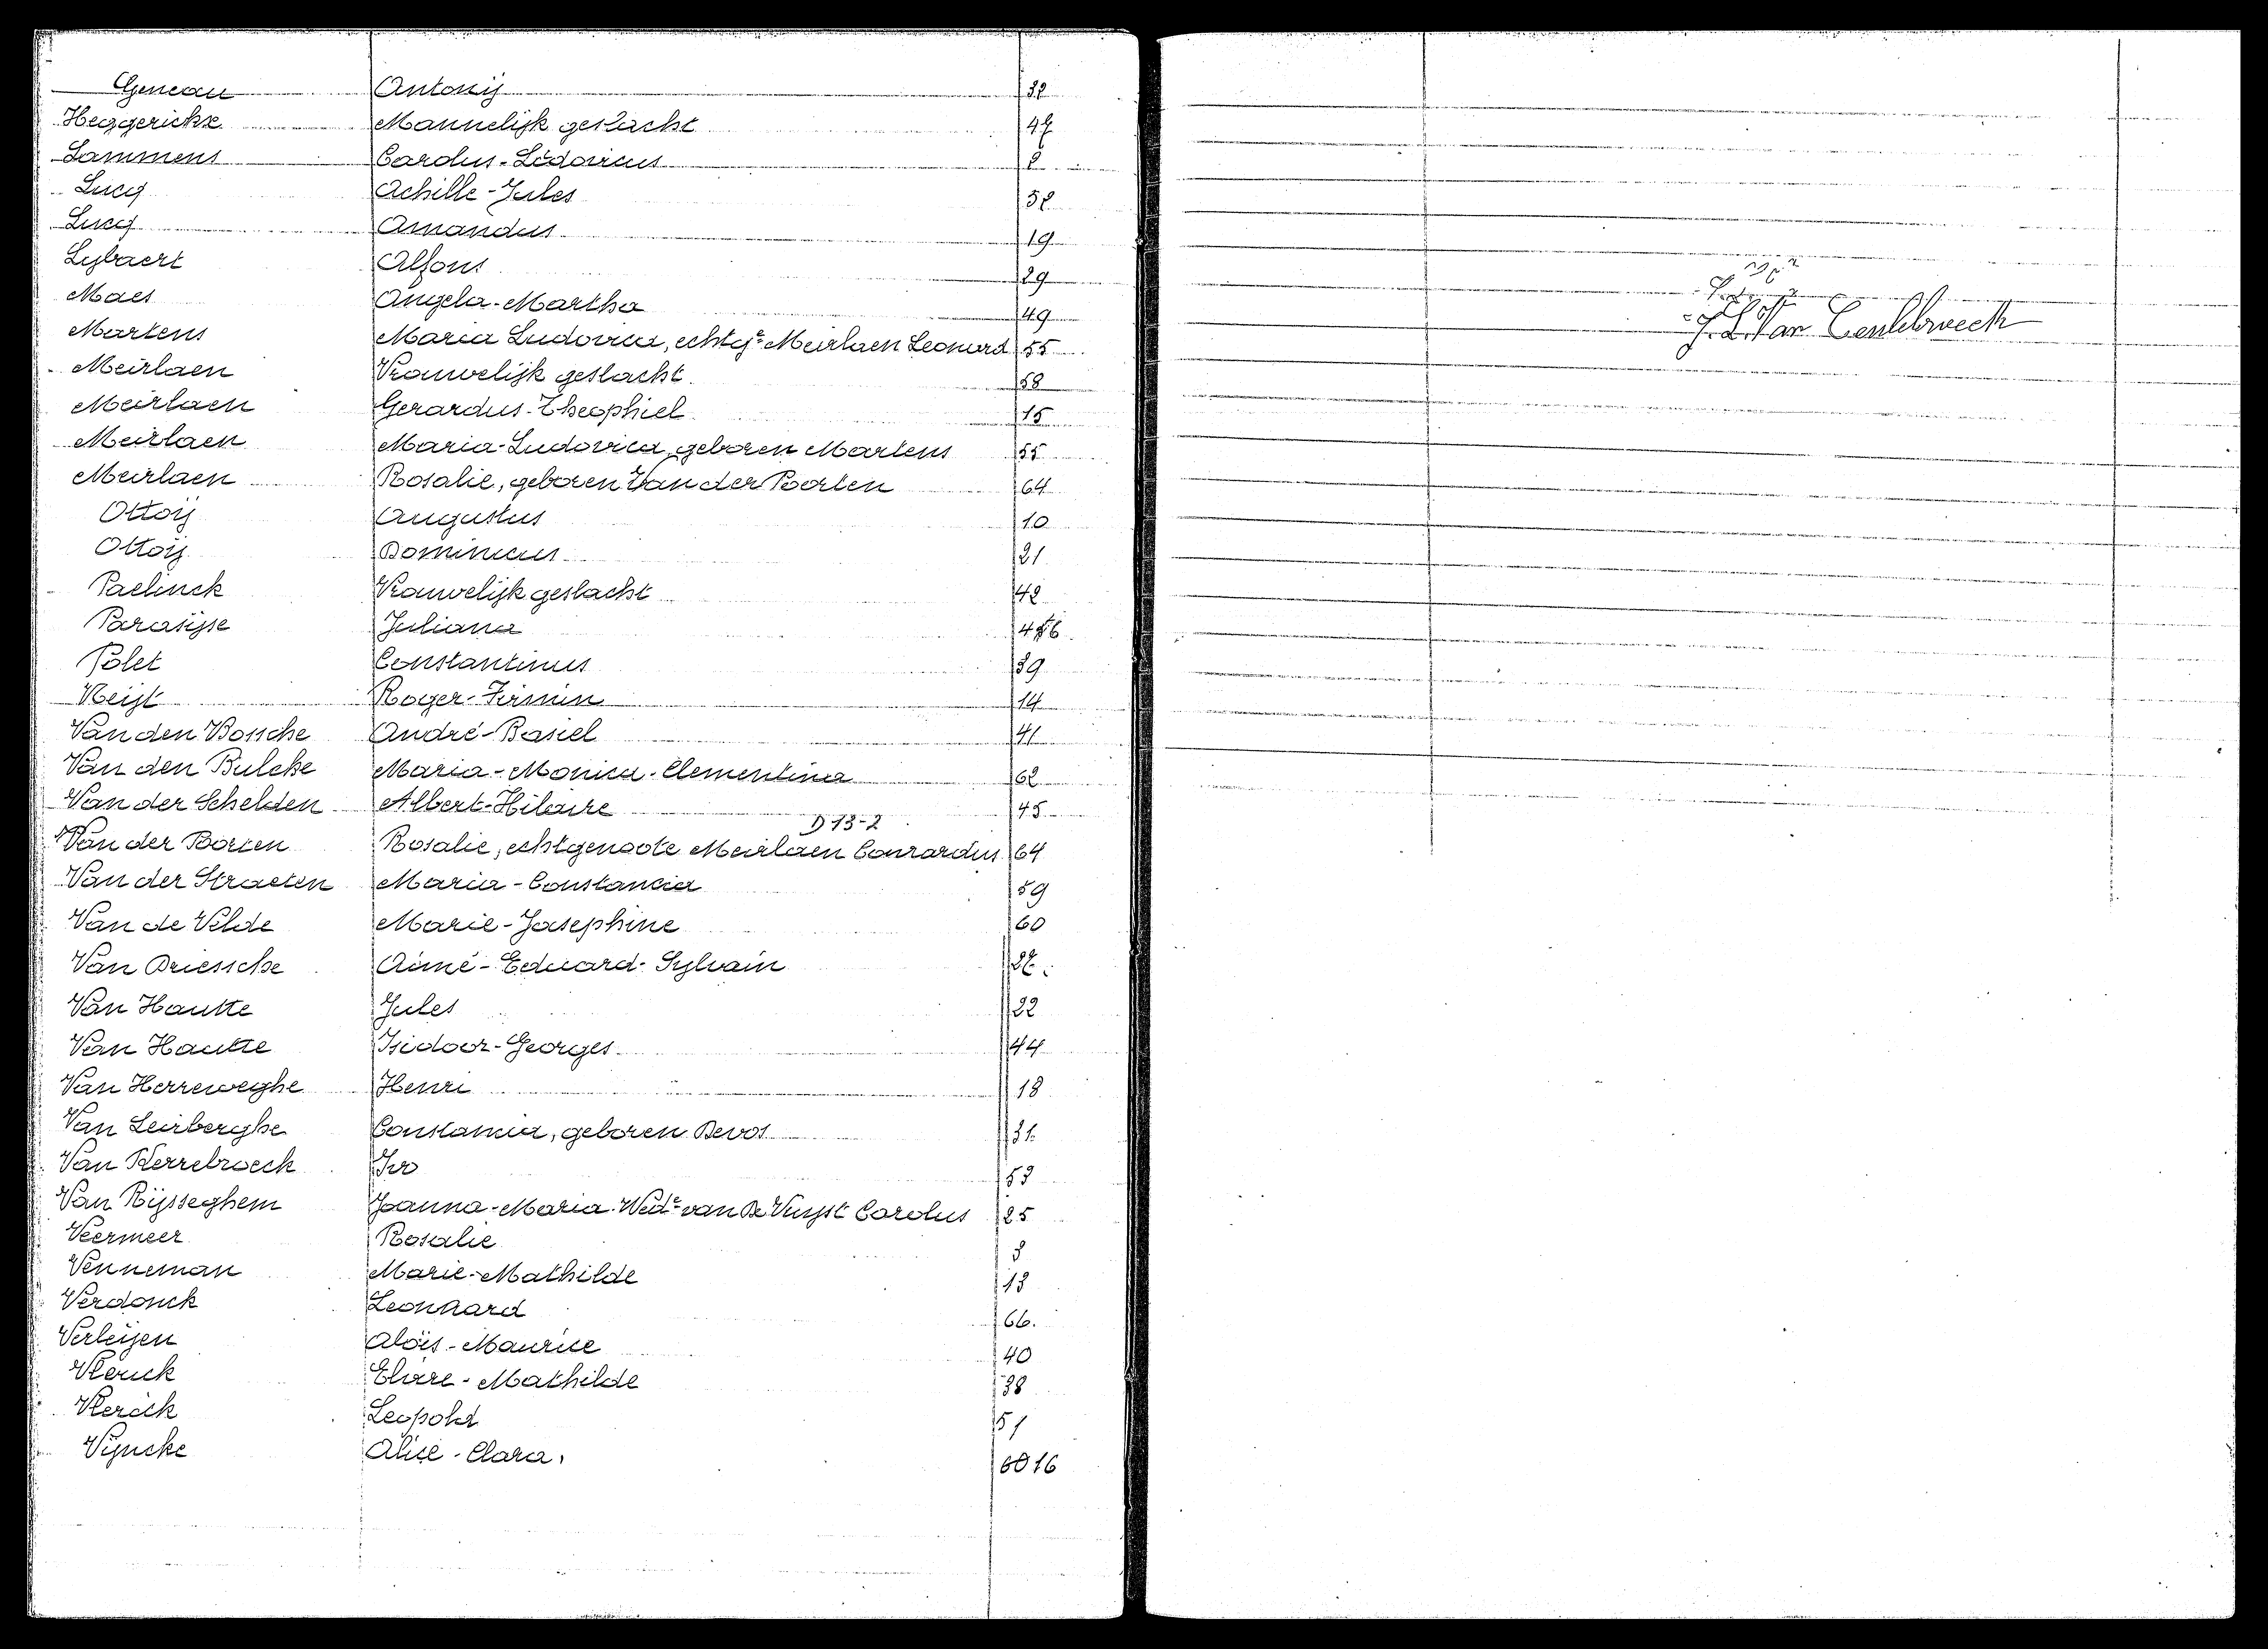 Geneau Antonij 32
Heggerickx Mannelijk geslacht 47
Lammens Carolus-Ludovicus 2
Lucq Achille-Jules 52
Lucq Amandus 19
Lybaert Alfons 29
Maes Angela-Martha 49
Martens Maria Ludovica, echtge Meirlaen Leonard 55
Meirlaen Vrouwelijk geslacht 58
Meirlaen Gerardus-Theophiel 15
Meirlaen Maria-Ludovica, geboren Martens 55
Meirlaen Rosalie, geboren Van der Poorten 64
Ottoij Augustus 10
Ottoij Dominicus 21
Paelinck Vrouwelijk geslacht 42
Parasijse Juliana
Polet Constantinus 39
Reijt Roger-Firmin 14
Van den Bossche André-Basiel 41
Van den Bulcke Maria-Monica-Clementina 62
Van der Schelden Albert-Hilaire 45
D 13-2
Van der Poorten Rosalie, echtgenoote Meirlaen Conrardus 64
Van der Straeten Maria-Constancia 59
Van de Velde Marie-Josephine 60
Van Driessche Aimé-Eduard-Sylvain
Van Hautte Jules 22
Van Hautte Isidoor-Georges 44
Van Herreweghe Henri 18
Van Leirberghe Constancia, geboren Devos 31
Van Kerrebroeck Ivo 53
Van Rijsseghem Joanna-Maria Wede van De Vuyst Carolus 25
Veermeer Rosalie 3
Venneman Marie-Mathilde 13
Verdonck Leonhard 66.
Verleijen Aloïs-Maurice 40
Vlerick Elvire-Mathilde 38
Vlerick Leopold 51
Vyncke Alice-Clara. 16